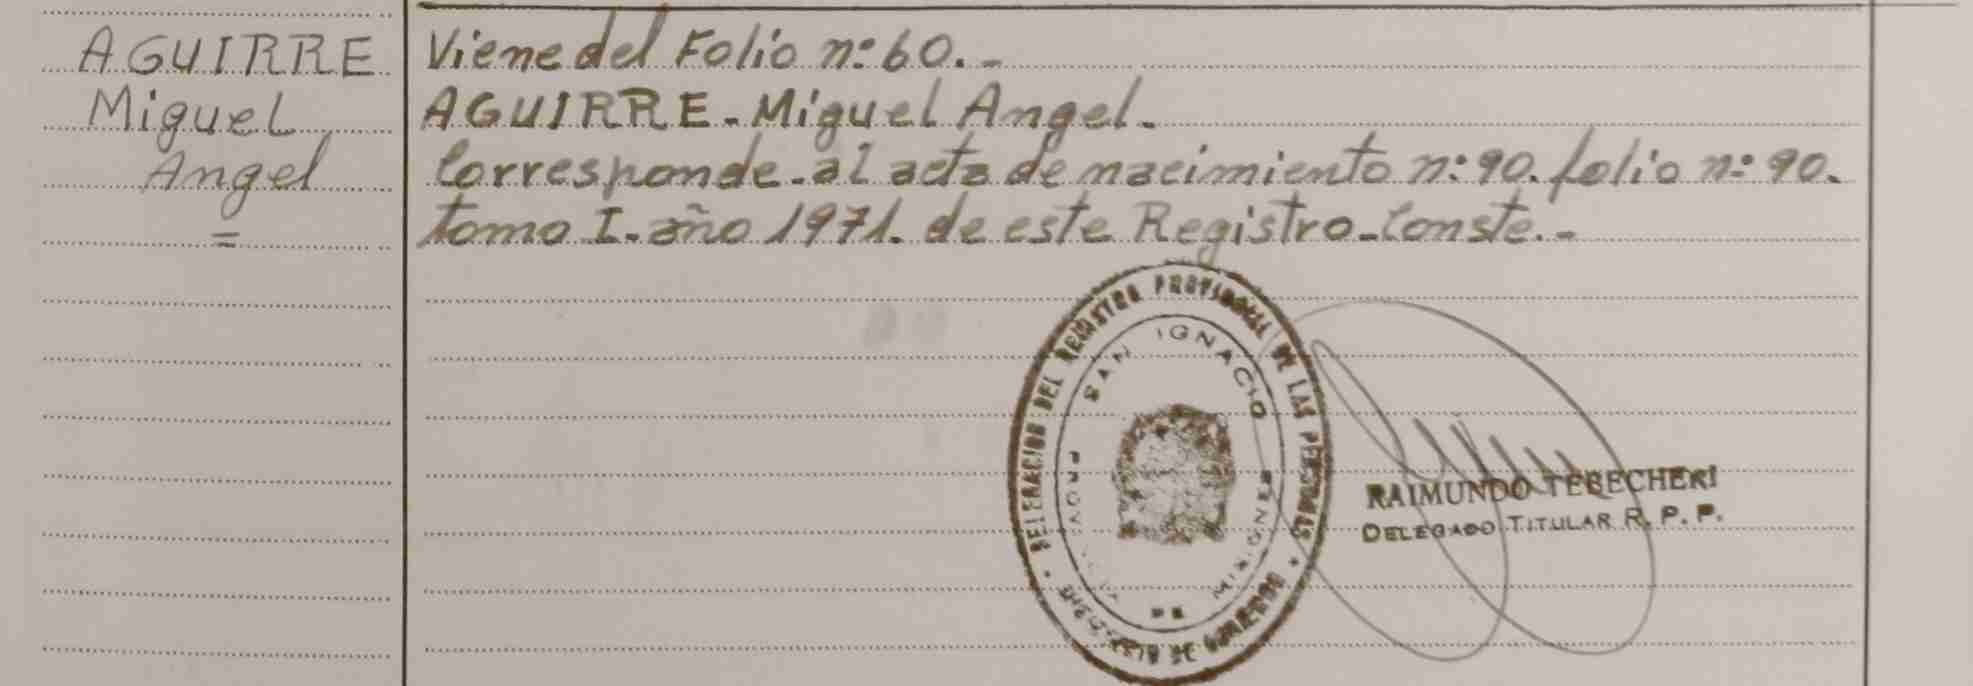 AGUIRRE
Miguel
Angel
=
Viene del Folio nº 60.-
AGUIRRE-Miguel Angel.
Corresponde-al acta de nacimiento nº 90. folio nº 90.
tomo I-año 1971. de este Registro-Conste.-
DELEGACION DEL REGISTRO PROVINCIAL DE LAS PERSONAS
MINISTERIO DE GOBIERNO
SAN IGNACIO
PROVINCIA DE MISIONES
RAIMUNDO TEBECHERI
DELEGADO TITULAR R. P. P.